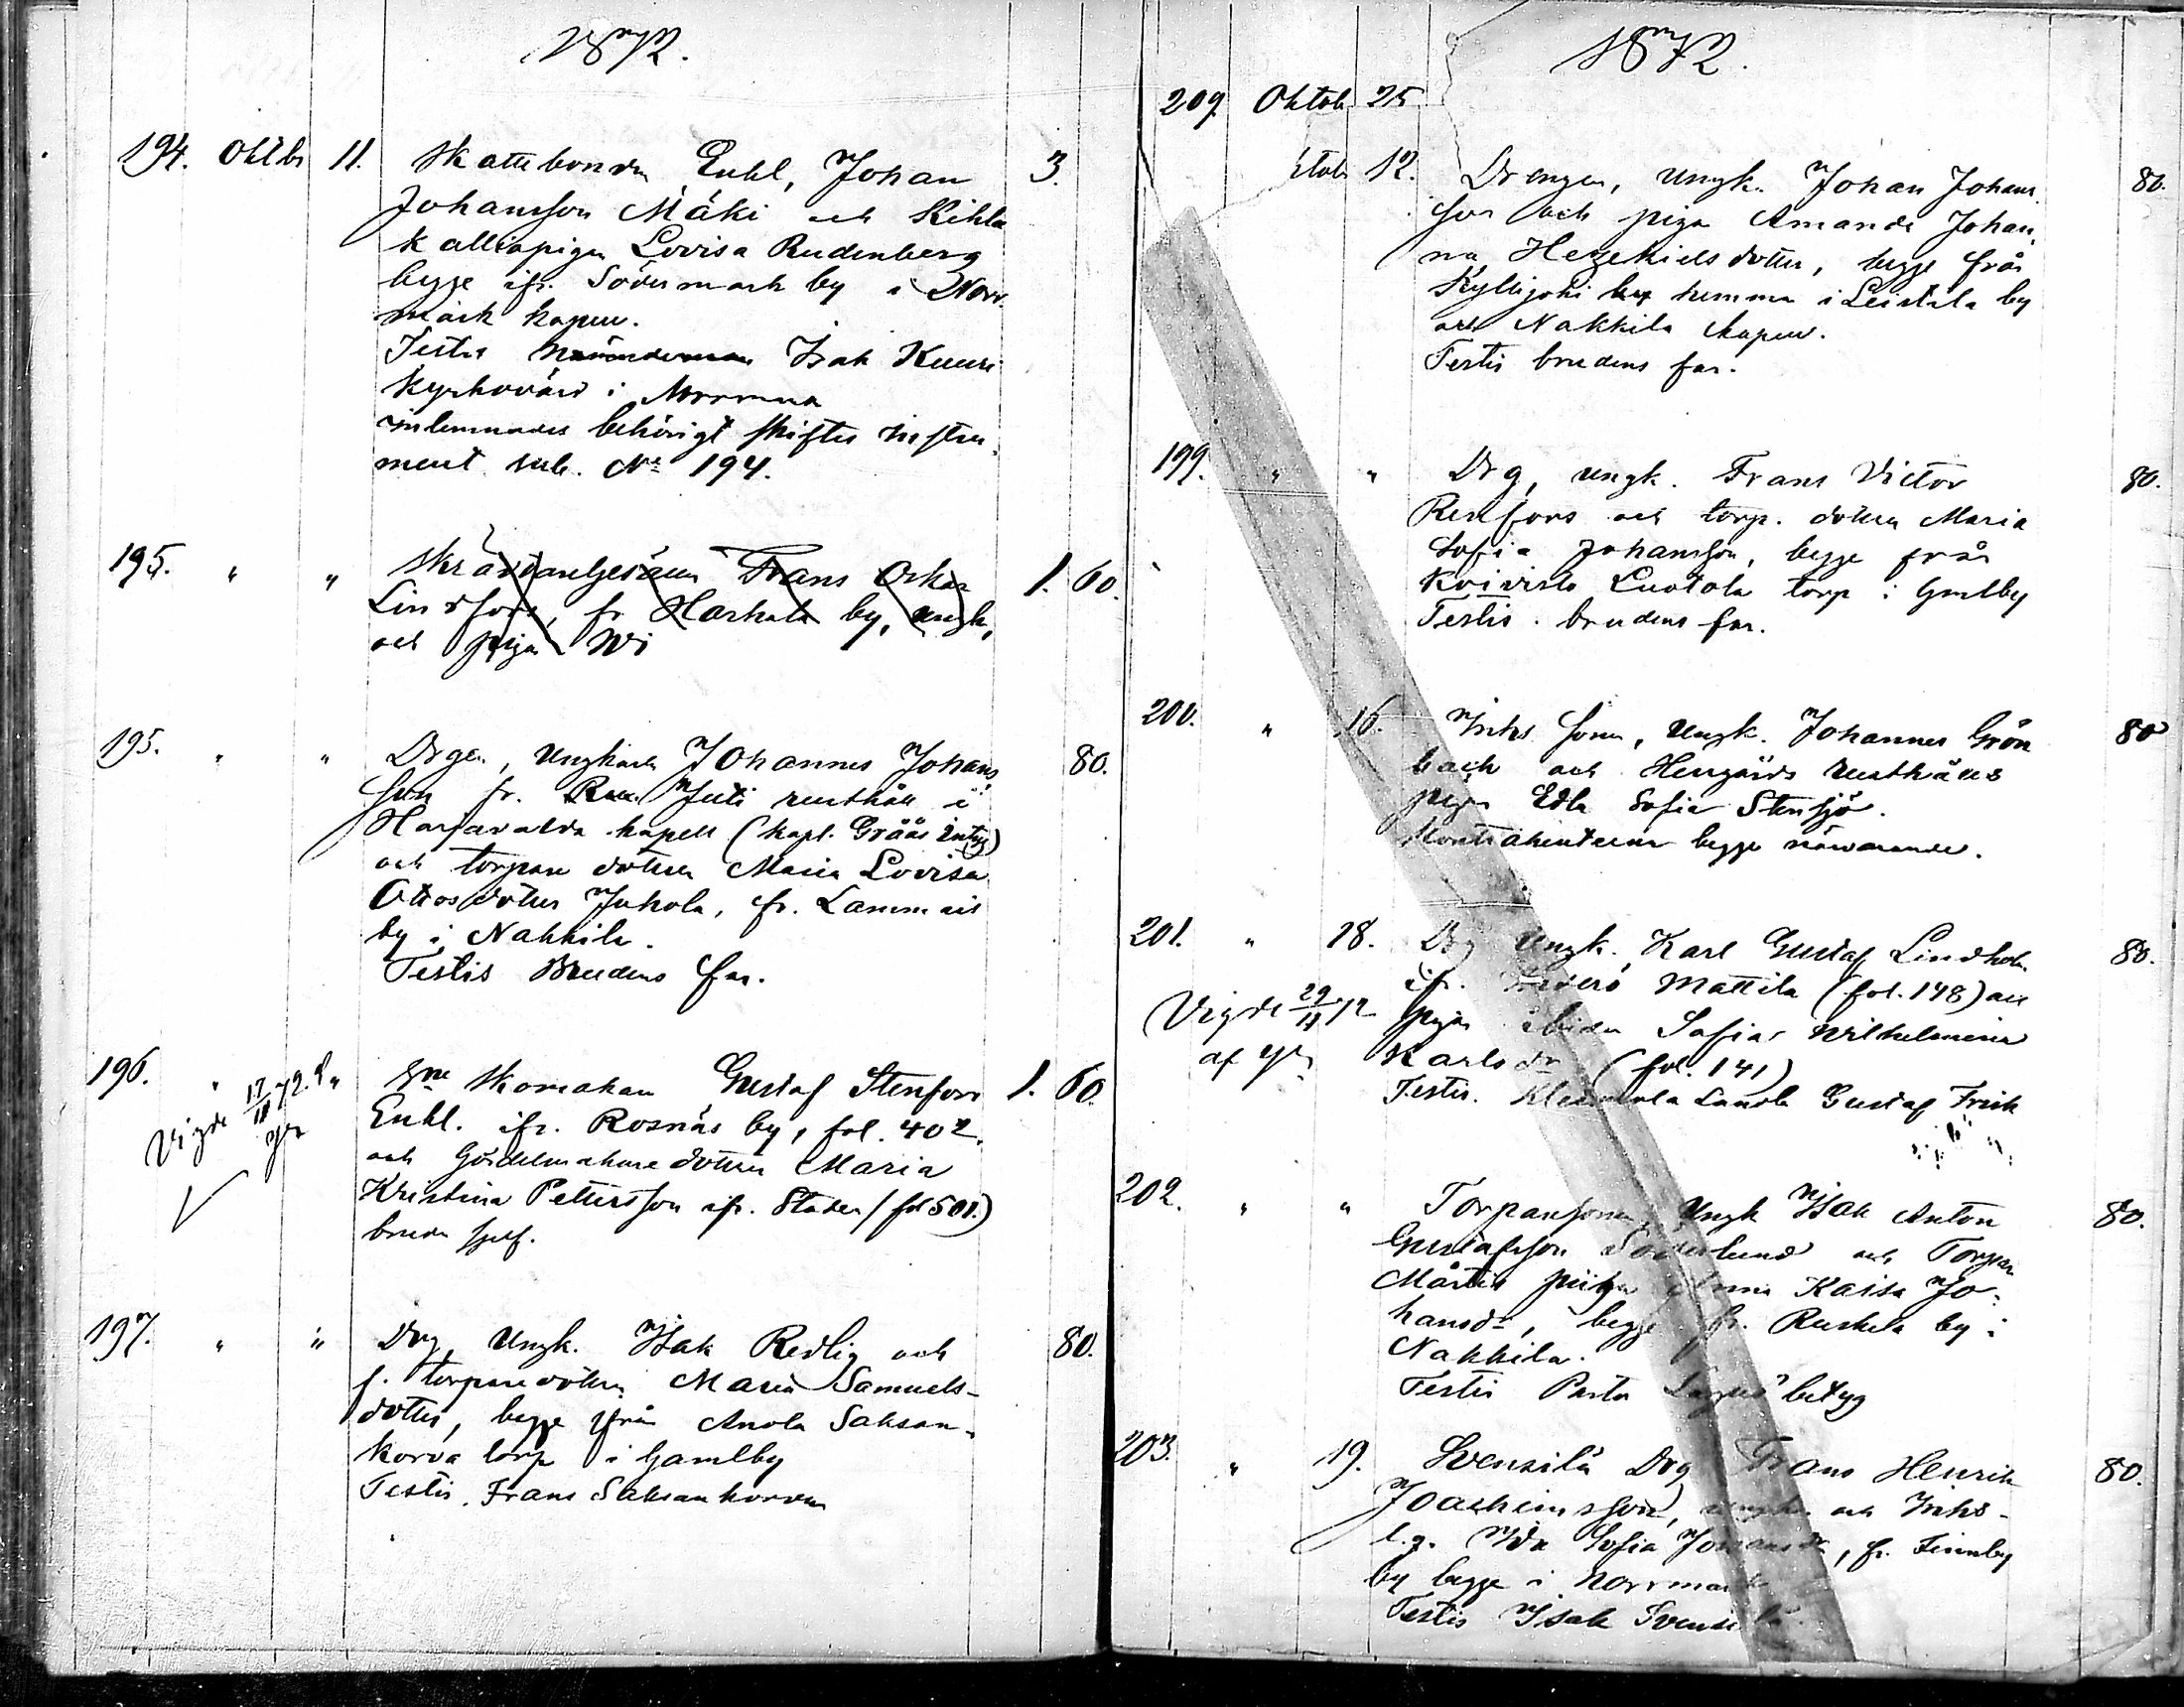 1872.
194. Oktbr 11. Skattebonden Enkl, Johan 3.
Johansson Mäki och Kihla
Kallio pigan Lovisa Rudenberg
begge ifr. Södermark by i Norr-
mark kapell.
Testis Nämndeman Isak Kuuri
Kyrkovärd i Norrmark
inlemnades behörigt skiftes instru-
ment sub. No 194.
195. " " Skräddaregesällen Frans Oskar 1. 60.
Lindfors, fr. Harhala by, ungk,
och pigan Wi
195. " " Drgen, Ungkarlen Johannes Johans 80.
son fr. Juti rusthåll i
Harjavalda kapell (kapl. Grääs intyg)
och torpare dottren Maria Lovisa
Ottosdotter Juhola, fr. Lammais
by i Nakkila.
Testis Brudens far.
196. " " Skomakaren Gustaf Stenfors 1. 60.
Vigde 17/11 72. af
Enkl. ifr. Rosnäs by, fol. 402.
och Gördelmakare dottren Maria
Kristina Pettersson ifr. Staden (fol 501.)
bruden sjelf.
197. " " Drg, Ungk. Isak Redlig och 80.
f. torpare dottren Maria Samuels-
dotter, begge från Anola Saksan-
korva torp i Gamlby
Testis. Frans Saksankorva
1872.
209. Oktob 25
ktob 12. Drengen, Ungk. Johan Johans 80.
son och pigan Amanda Johan-
na Hezekielsdotter, begge från
Kyllijoki hemman i Leistila by
och Nakkila kapell.
Testis brudens far.
199. " " Drg, ungk. Frans Victor 80.
Renfors och torp. dottren Maria
Sofia Johansson, begge från
Koivisto Luotola torp i Gamlby
Testis. brudens far.
200. " 16. Inhs sonen, Ungk. Johannes Grön 80
back och Hengårds rusthålls
pigan Edla Sofia Stensjö.
Kontrahenterne begge närvarande.
201. " 18. Drg Ungk. Karl Gustaf Lindholm 80.
ifr. Mattila (fol. 148) och
Vigde 29/11 72 pigan Ida Sofia Wilhelmina
af Karlsdr (fol. 141)
Testis. Gustaf Frisk
202. " " Torparesonen, Ungk Isak Anton 80.
Gustafsson Söderlund och Torpar
Mårtis pigan Anna Kaisa Jo-
hansdr, begge fr. Ruskila by i
Nakkila.
Testis Pastor betyg
203. " 19. Svensilä Drg Frans Henrik 80.
Joachimsson, ungk. och Inhs-
Ida Sofia Johansdr, fr. Finnby
by begge i Norrmark
Testis Isak Svensilä